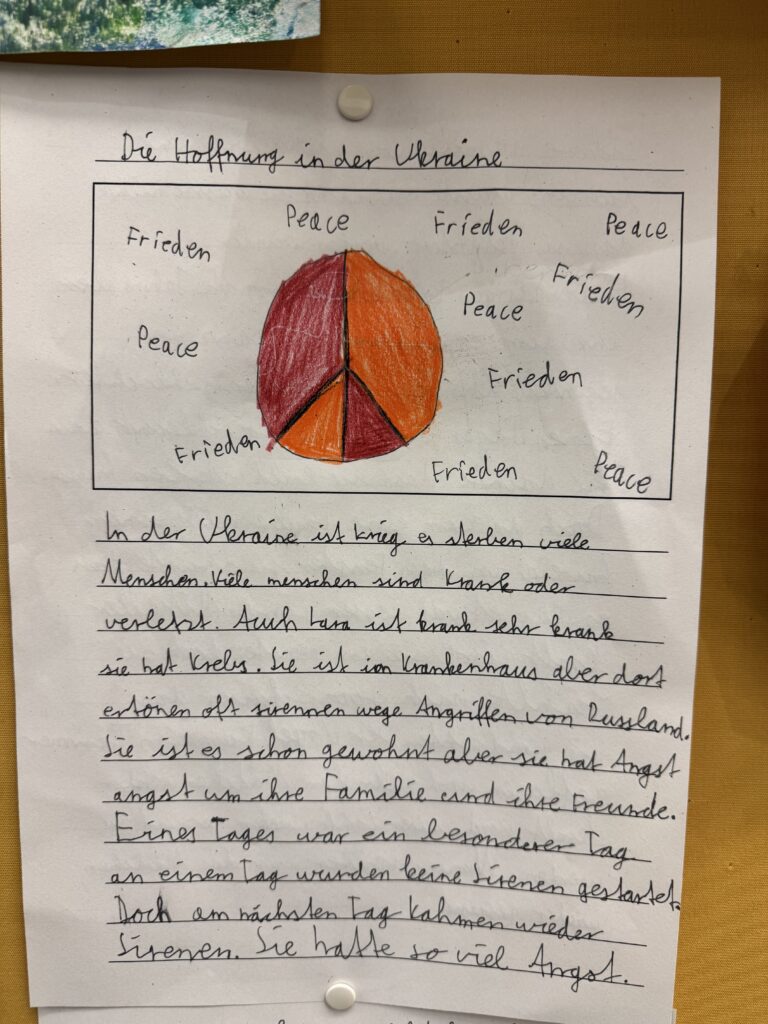 Die Hoffnung in der Ukraine
Peace Frieden Peace
Frieden
Frieden
Peace
Peace
Frieden
Frieden
Frieden
Peace
In der Ukraine ist krieg es sterben viele
Menschen. Viele menschen sind Krank oder
verletzt. Auch Lara ist krank sehr krank
sie hat Krebs. Sie ist im Krankenhaus aber dort
ertönen oft sirennen wege Angriffen von Russland.
Sie ist es schon gewohnt aber sie hat Angst
angst um ihre Familie und ihre Freunde.
Eines Tages war ein besonderer Tag
an einem Tag wurden keine Sirenen gestartet.
Doch am nächsten Tag kahmen wieder
Sirenen. Sie hatte so viel Angst.